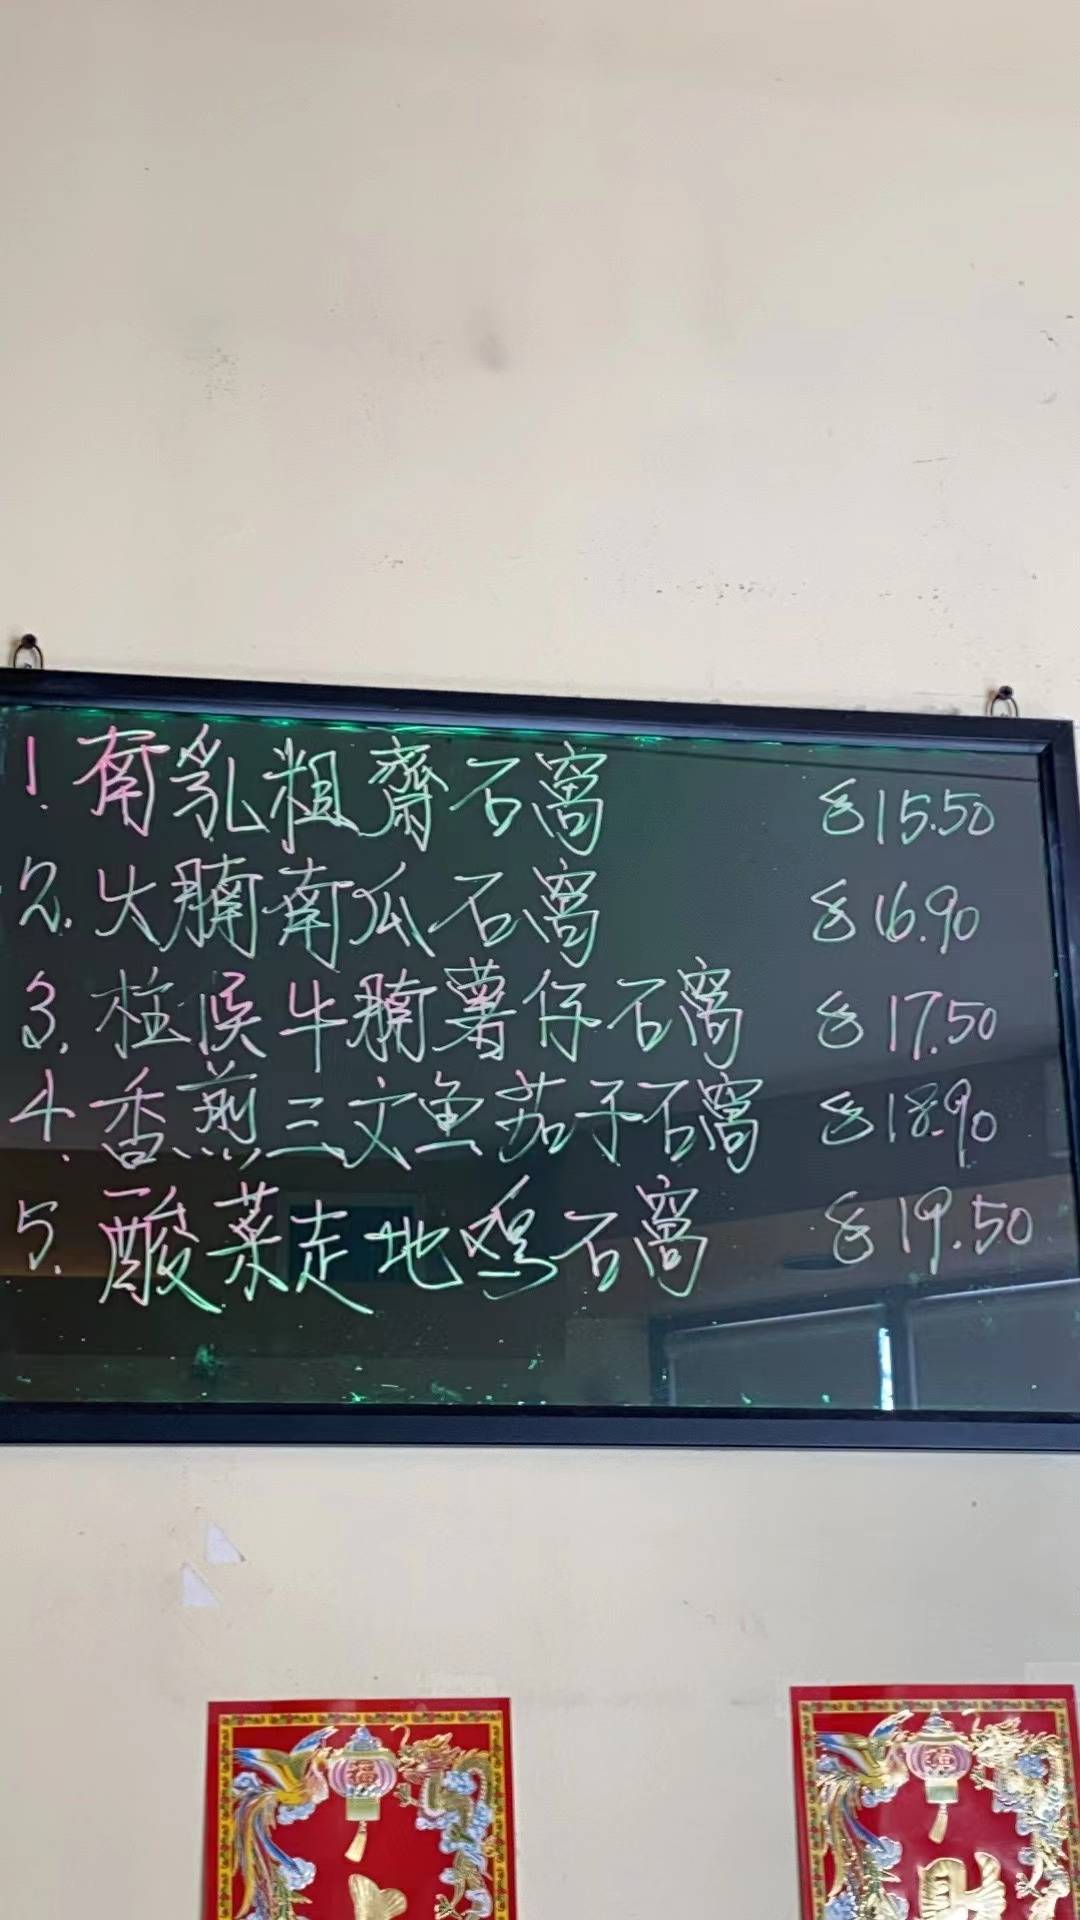 1. 南乳粗齋石窩 €15.50
2. 火腩南瓜石窩 €16.90
3. 柱侯牛腩薯仔石窩 €17.50
4. 香煎三文鱼茄子石窩 €18.90
5. 酸菜走地鸡石窩 €19.50
福 福
財